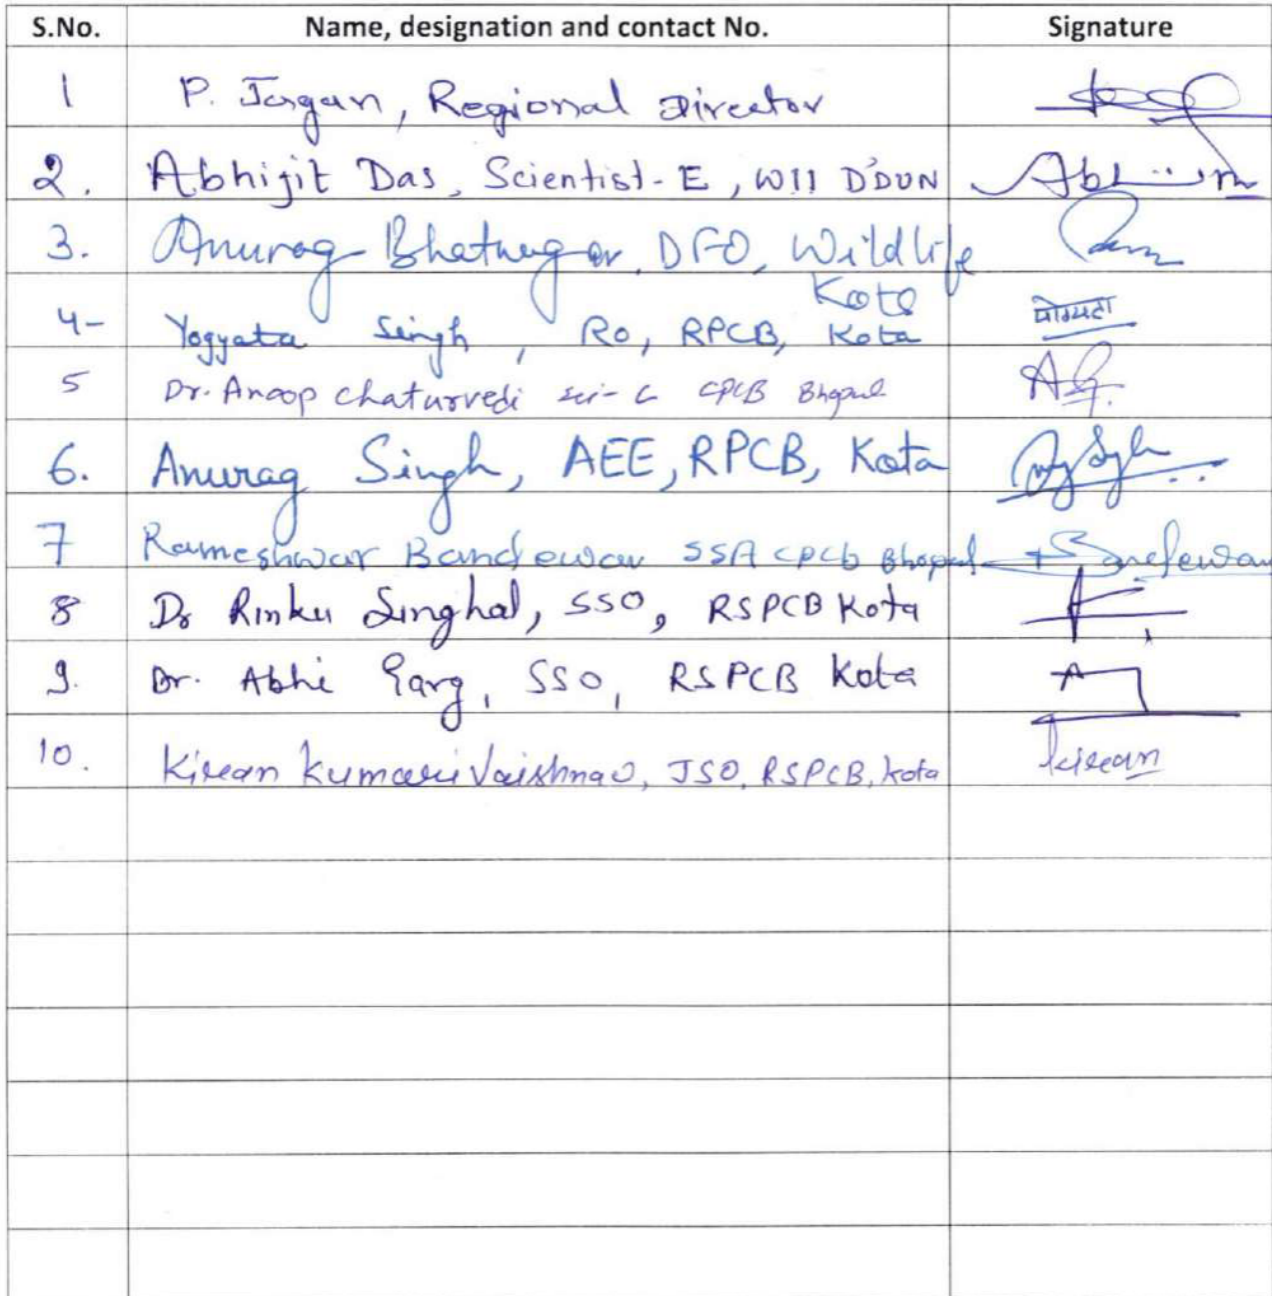 S.No. Name, designation and contact No. Signature
1 P. Jagan, Regional Director
2. Abhijit Das, Scientist-E, WII D'DUN
3. Anurag Bhatnagar, DFO, Wildlife
Kota
4- Yogyata Singh, RO, RPCB, Kota योग्यता
5 Dr. Anoop Chaturvedi sci- CPCB Bhopal
6. Anurag Singh, AEE, RPCB, Kota
7 Rameshwar Bandewar SSA CPCB Bhopal Bandewar
8 Dr Rinku Singhal, SSO, RSPCB Kota
9. Dr. Abhi Garg, SSO, RSPCB Kota
10. Kiran Kumari Vaishnav, JSO, RSPCB, Kota kiran